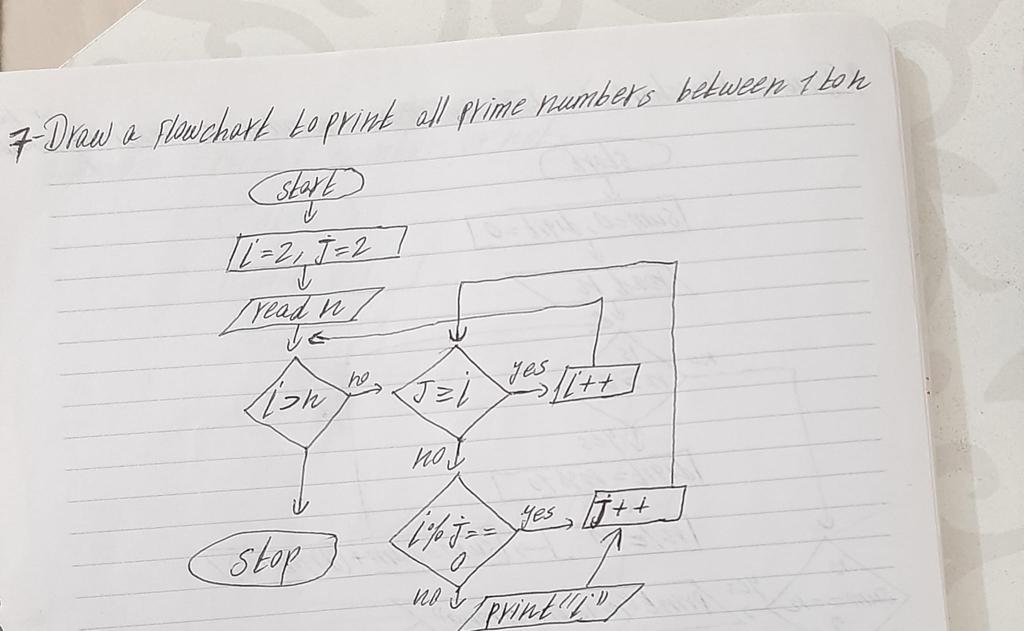 7-Draw a flowchart to print all prime numbers between 1 to n
start
i=2, j=2
read n
i>n
no
J≥i
yes
i++
no
i%j==
0
yes
j++
stop
no
print "i"